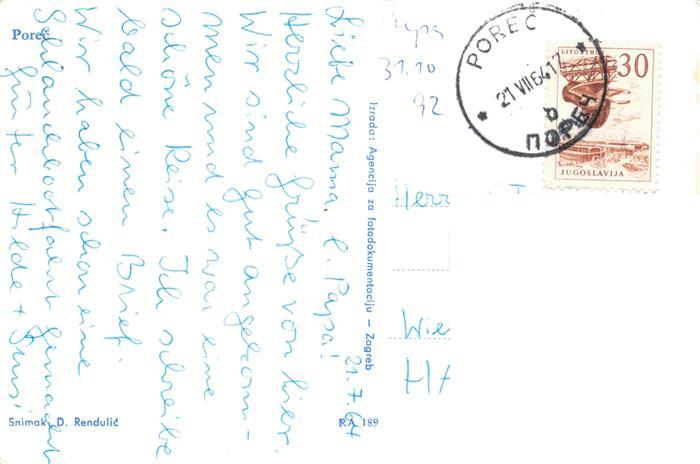 Poreč
Liebe Mama, l. Papa!
21.7.64
Herzliche Grüße von hier.
Wir sind gut angekom-
men und es war eine
schöne Reise. Ich schreibe
bald einen Brief.
Wir haben schon eine
Schlauchbootfahrt gemacht
Günter Hilde + Susi
Snimak D. Rendulić
RA 189
Izrada: Agencija za fotodokumentaciju - Zagreb
Papa
31.10
92
POREČ
21 VII 64 17
b
ПОРЕЧ
LITOSTROJ
30
JUGOSLAVIJA
Herr
Wie